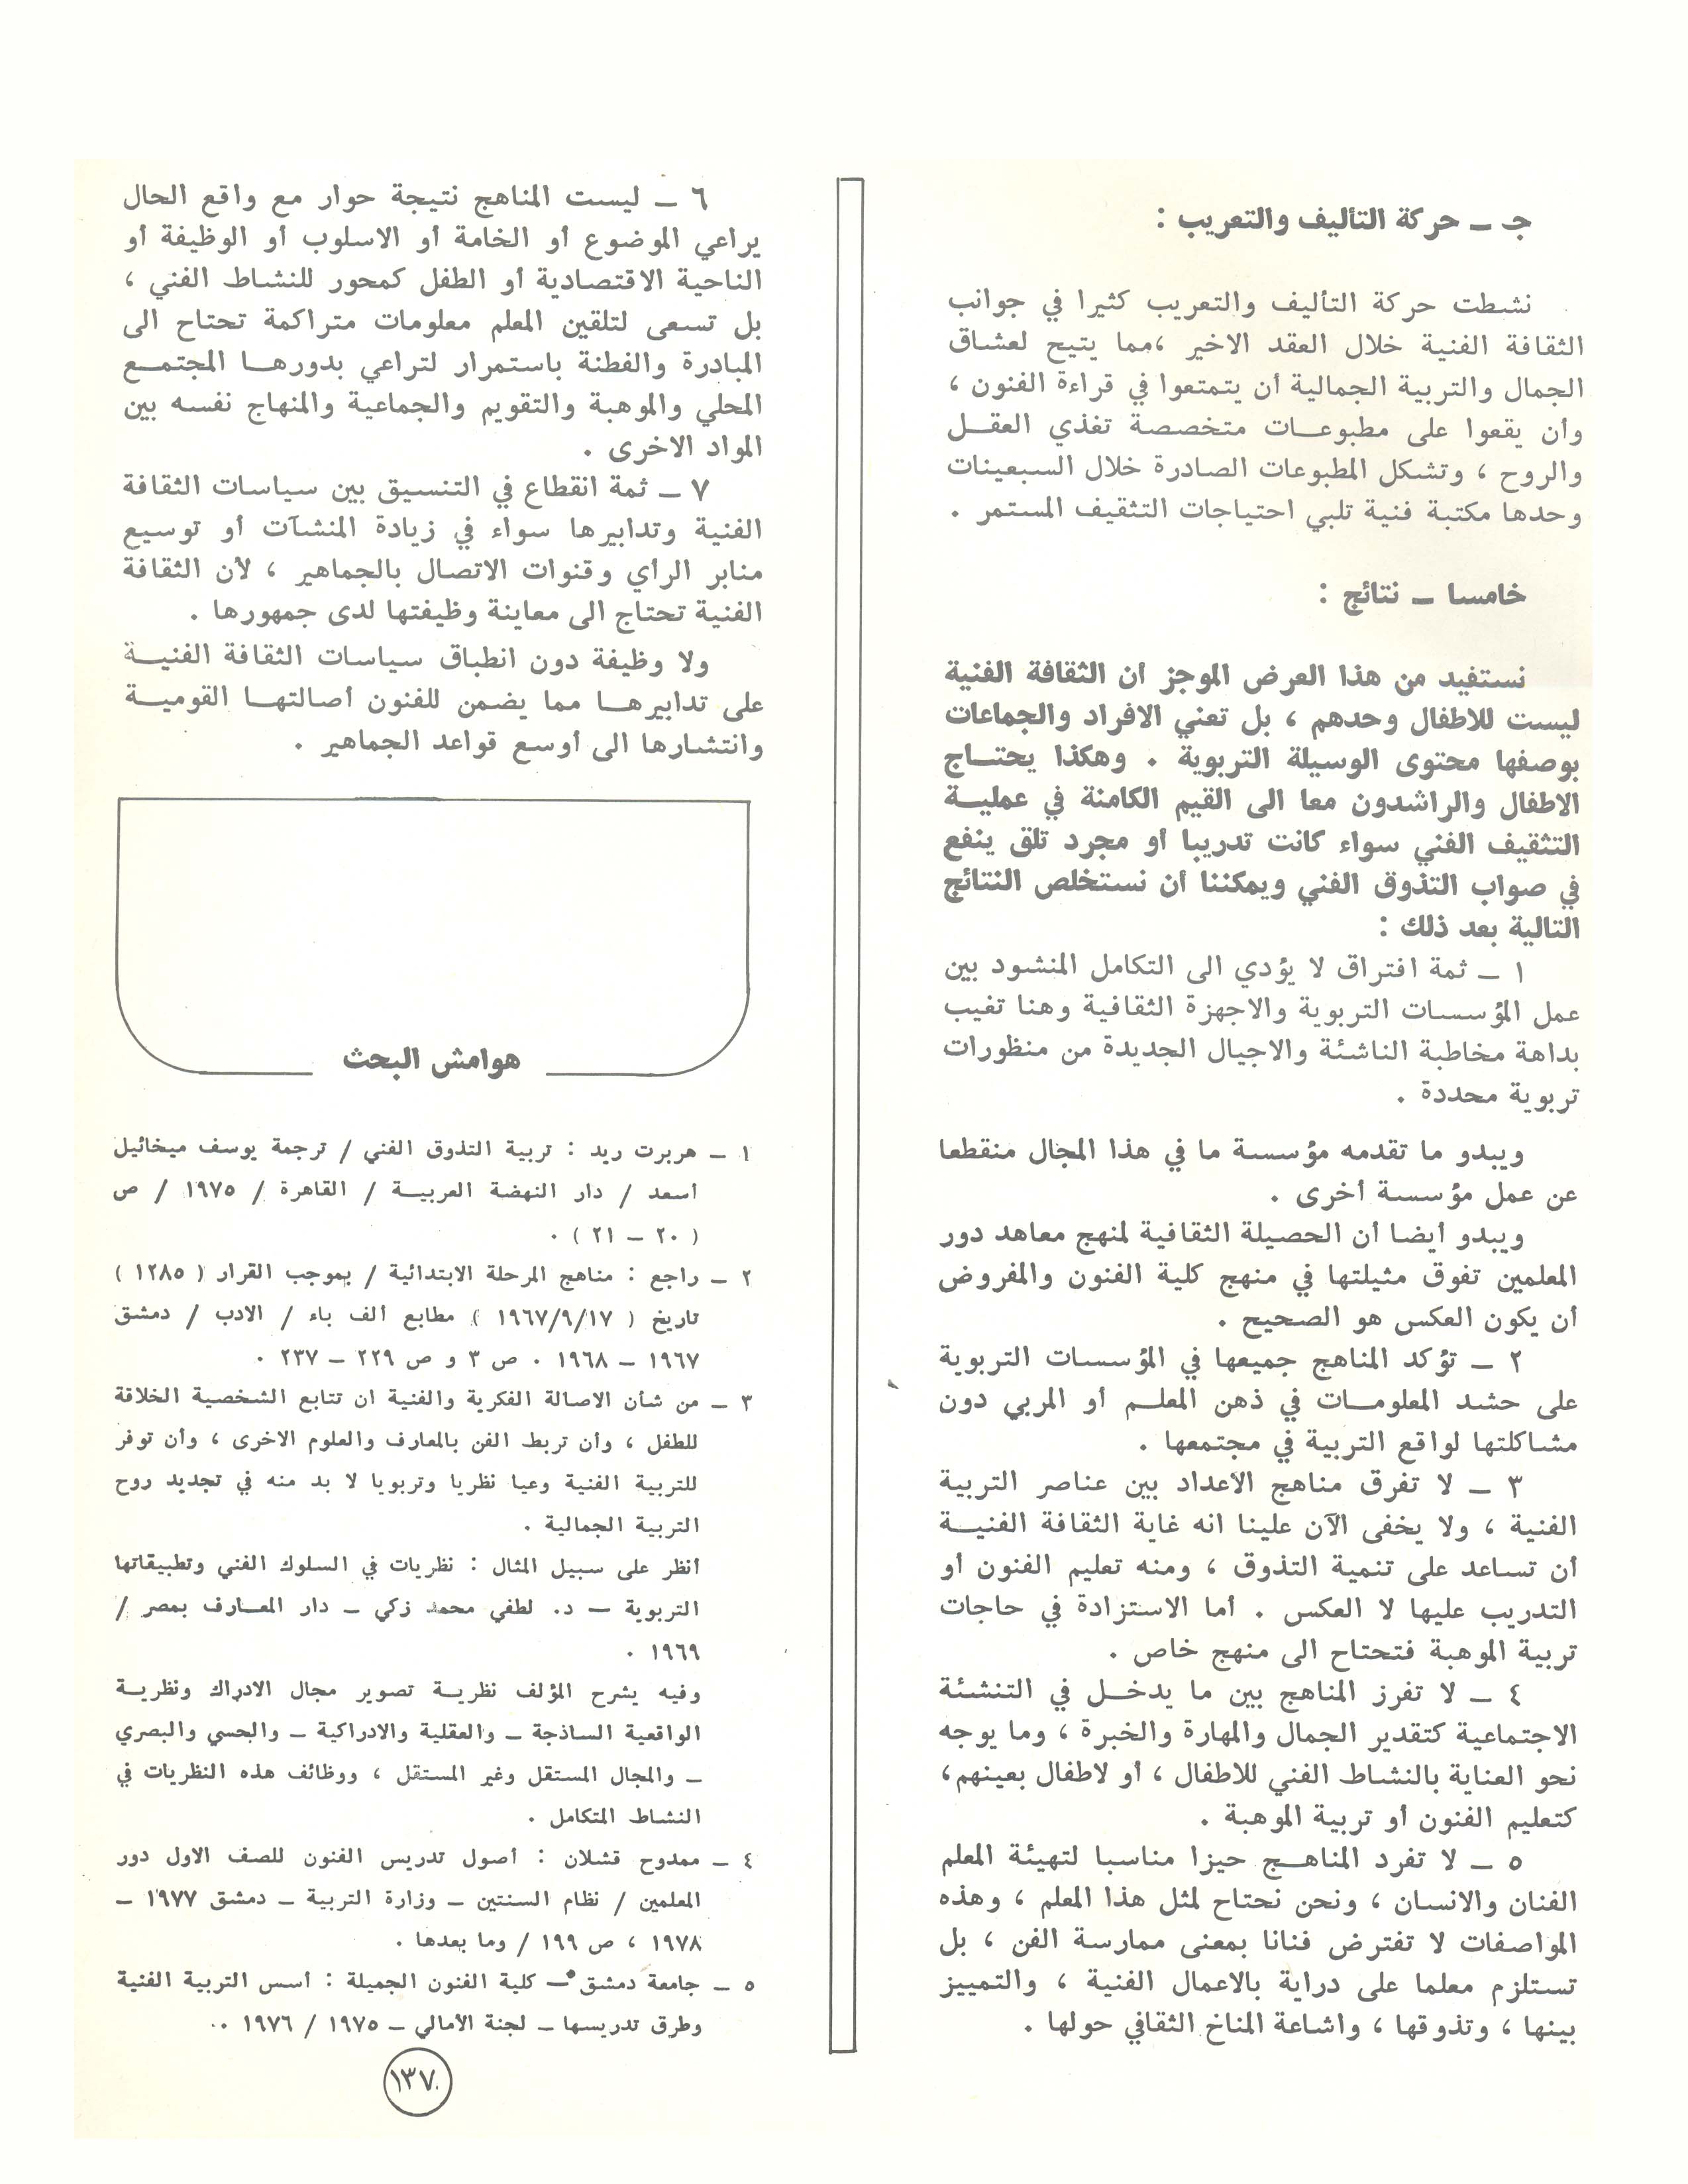 جـ ــ حركة التأليف والتعريب :
نشطت حركة التأليف والتعريب كثيرا في جوانب
الثقافة الفنية خلال العقد الاخير ،مما يتيح لعشاق
الجمال والتربية الجمالية أن يتمتعوا في قراءة الفنون ،
وأن يقعوا على مطبوعـات متخصصة تغذي العقـل
والروح ، وتشكل المطبوعات الصادرة خلال السبعينات
وحدها مكتبة فنية تلبي احتياجات التثقيف المستمر .
خامسا ــ نتائج :
نستفيد من هذا العرض الموجز ان الثقافة الفنية
ليست للاطفال وحدهم ، بل تعني الافراد والجماعات
بوصفها محتوى الوسيلة التربوية . وهكذا يحتـاج
الاطفال والراشدون معا الى القيم الكامنة في عمليـة
التثقيف الفني سواء كانت تدريبا أو مجرد تلق ينفع
في صواب التذوق الفني ويمكننا أن نستخلص النتائج
التالية بعد ذلك :
١ ــ ثمة افتراق لا يؤدي الى التكامل المنشود بين
عمل المؤسسات التربوية والاجهزة الثقافية وهنا تغيب
بداهة مخاطبة الناشئة والاجيال الجديدة من منظورات
تربوية محددة .
ويبدو ما تقدمه مؤسسة ما في هذا المجال منقطعا
عن عمل مؤسسة أخرى .
ويبدو أيضا أن الحصيلة الثقافية لمنهج معاهد دور
المعلمين تفوق مثيلتها في منهج كلية الفنون والمفروض
أن يكون العكس هو الصحيح .
٢ ــ تؤكد المناهج جميعها في المؤسسات التربوية
على حشد المعلومـات في ذهن المعلـم أو المربي دون
مشاكلتها لواقع التربية في مجتمعها .
٣ ــ لا تفرق مناهج الاعداد بين عناصر التربية
الفنية ، ولا يخفى الآن علينا انه غاية الثقافة الفنيـة
أن تساعد على تنمية التذوق ، ومنه تعليم الفنون أو
التدريب عليها لا العكس . أما الاستزادة في حاجات
تربية الموهبة فتحتاج الى منهج خاص .
٤ ــ لا تفرز المناهج بين ما يدخـل في التنشئة
الاجتماعية كتقدير الجمال والمهارة والخبرة ، وما يوجه
نحو العناية بالنشاط الفني للاطفال ، أو لاطفال بعينهم،
كتعليم الفنون أو تربية الموهبة .
٥ ــ لا تفرد المناهـج حيزا مناسبا لتهيئة المعلم
الفنان والانسان ، ونحن نحتاج لمثل هذا المعلم ، وهذه
المواصفات لا تفترض فنانا بمعنى ممارسة الفن ، بل
تستلزم معلما على دراية بالاعمال الفنية ، والتمييز
بينها ، وتذوقها ، واشاعة المناخ الثقافي حولها .
٦ ــ ليست المناهج نتيجة حوار مع واقع الحال
يراعي الموضوع أو الخامة أو الاسلوب أو الوظيفة أو
الناحية الاقتصادية أو الطفل كمحور للنشاط الفني ،
بل تسعى لتلقين المعلم معلومات متراكمة تحتاج الى
المبادرة والفطنة باستمرار لتراعي بدورهـا المجتمـع
المحلي والموهبة والتقويم والجماعية والمنهاج نفسه بين
المواد الاخرى .
٧ ــ ثمة انقطاع في التنسيق بين سياسات الثقافة
الفنية وتدابيرها سواء في زيادة المنشآت أو توسيع
منابر الرأي وقنوات الاتصال بالجماهير ، لأن الثقافة
الفنية تحتاج الى معاينة وظيفتها لدى جمهورها .
ولا وظيفة دون انطباق سياسات الثقافة الفنيـة
على تدابيرهـا مما يضمن للفنون أصالتهـا القوميـة
وانتشارها الى أوسع قواعد الجماهير .
هوامش البحث
١ ــ هربرت ريد : تربية التذوق الفني / ترجمة يوسف ميخائيل
أسعد / دار النهضة العربيـة / القاهرة / ١٩٧٥ / ص
( ٢٠ ــ ٢١ ) .
٢ ــ راجع : مناهج المرحلة الابتدائية / بموجب القرار ( ١٢٨٥ )
تاريخ ( ١٩٦٧/٩/١٧ ) مطابع ألف باء / الادب / دمشق
١٩٦٧ ــ ١٩٦٨ . ص ٣ و ص ٢٢٩ ــ ٢٣٧ .
٣ ــ من شأن الاصالة الفكرية والفنية ان تتابع الشخصية الخلاقة
للطفل ، وأن تربط الفن بالمعارف والعلوم الاخرى ، وأن توفر
للتربية الفنية وعيا نظريا وتربويا لا بد منه في تجديد روح
التربية الجمالية .
أنظر على سبيل المثال : نظريات في السلوك الفني وتطبيقاتها
التربوية ــ د. لطفي محمد زكي ــ دار المعـارف بمصر /
١٩٦٩ .
وفيه يشرح المؤلف نظريـة تصوير مجال الادراك ونظريـة
الواقعية الساذجة ــ والعقلية والادراكية ــ والحسي والبصري
ــ والمجال المستقل وغير المستقل ، ووظائف هذه النظريات في
النشاط المتكامل .
٤ ــ ممدوح قشلان : أصول تدريس الفنون للصف الاول دور
المعلمين / نظام السنتين ــ وزارة التربية ــ دمشق ١٩٧٧ ــ
١٩٧٨ ، ص ١٩٩ / وما بعدها .
٥ ــ جامعة دمشق ــ كلية الفنون الجميلة : أسس التربية الفنية
وطرق تدريسها ــ لجنة الأمالي ــ ١٩٧٥ / ١٩٧٦ .
١٣٧